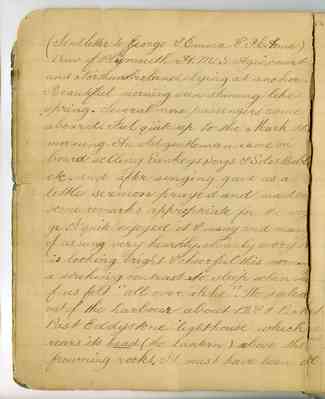 (Sent letter to George & Emma
View of Plymouth H.M.S. Agincourt
and Northumberland lying at anchor.
Beautiful morning sun shining like
spring. Several more passengers come
aboard. Felt quite up to the Mark this
morning. An old gentleman came on
board selling Sankeys Songs & Solos Books
etc and after singing gave us a
little sermon prayed and made
some remarks appropriate for the
I quite enjoyed it I
of us sung very heartily
is looking bright & cheerful this
a striking contrast to when
of us felt "all over alike". We sailed
out of the harbour about
Past Eddystone lighthouse which
rears its head (the lantern) above the
frowning rocks. It must have been